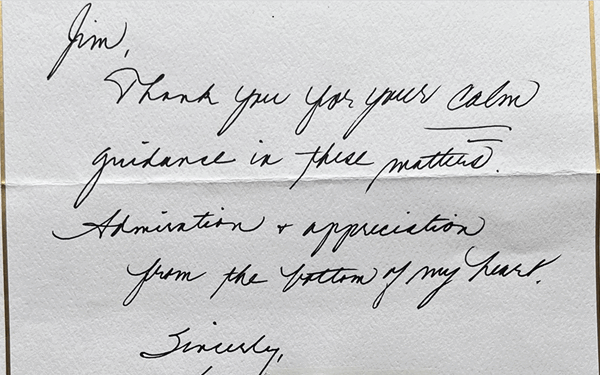 Jim,
Thank you for your calm
guidance in these matters.
Admiration + appreciation
from the bottom of my heart.
Sincerely,